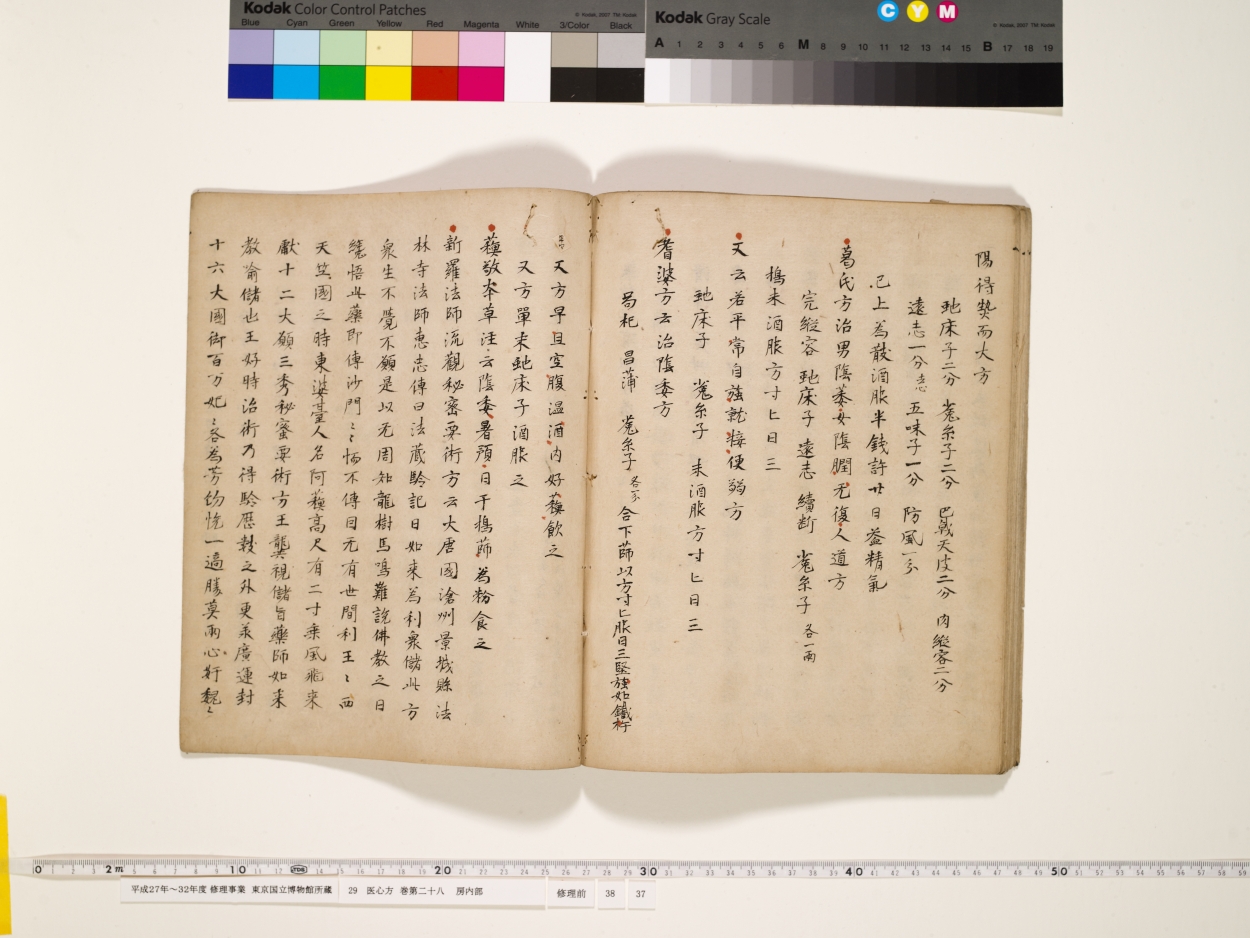 Kodak Color Control Patches
Blue Cyan Green Yellow Red Magenta White 3/Color Black
Kodak Gray Scale
C Y M
A 1 2 3 4 5 6 M 8 9 10 11 12 13 14 15 B 17 18 19
陽得熱而大方
虵床子二分 菟糸子二分 巴戟天皮二分 肉縱容二分
遠志一分 五味子一分 防風一分
已上為散酒服半錢許廿日益精氣
葛氏方治男陰萎女陰膶无復人道方
完縱容 虵床子 遠志 續斷 菟糸子 各一兩
搗末酒服方寸匕日三
又云若平常自強就接便弱方
虵床子 菟糸子 末酒服方寸匕日三
耆婆方云治陰委方
苟杞 昌蒲 菟糸子 各一分 合下篩以方寸匕服日三堅強如鐵杵
又方早旦空腹温酒內好蘓飲之
又方單末虵床子酒服之
蘓敬本草注云陰委署預日干搗篩為粉食之
新羅法師流觀秘密要術方云大唐國滄州景城縣法
林寺法師惠忠傳曰法藏驗記曰如來為利衆儲此方
衆生不覺不願是以无周知龍樹馬鳴難說佛教之日
纔悟此藥即傳沙門〻悋不傳自元有世間利王〻西
天竺國之時東婆臺人名阿蘓高尺有二寸乗風飛来
獻十二大願三秀秘蜜要術方王龔視儲旨藥師如来
教喻儲也王好時治術乃得驗歷數之外更羕廣運封
十六大國御百万妃〻各為芳飭恍一適勝莫兩心好魏〻
平成27年～32年度 修理事業 東京国立博物館所蔵 29 医心方 巻第二十八 房内部 修理前 38 37
0 2m 10 20 30 40 50